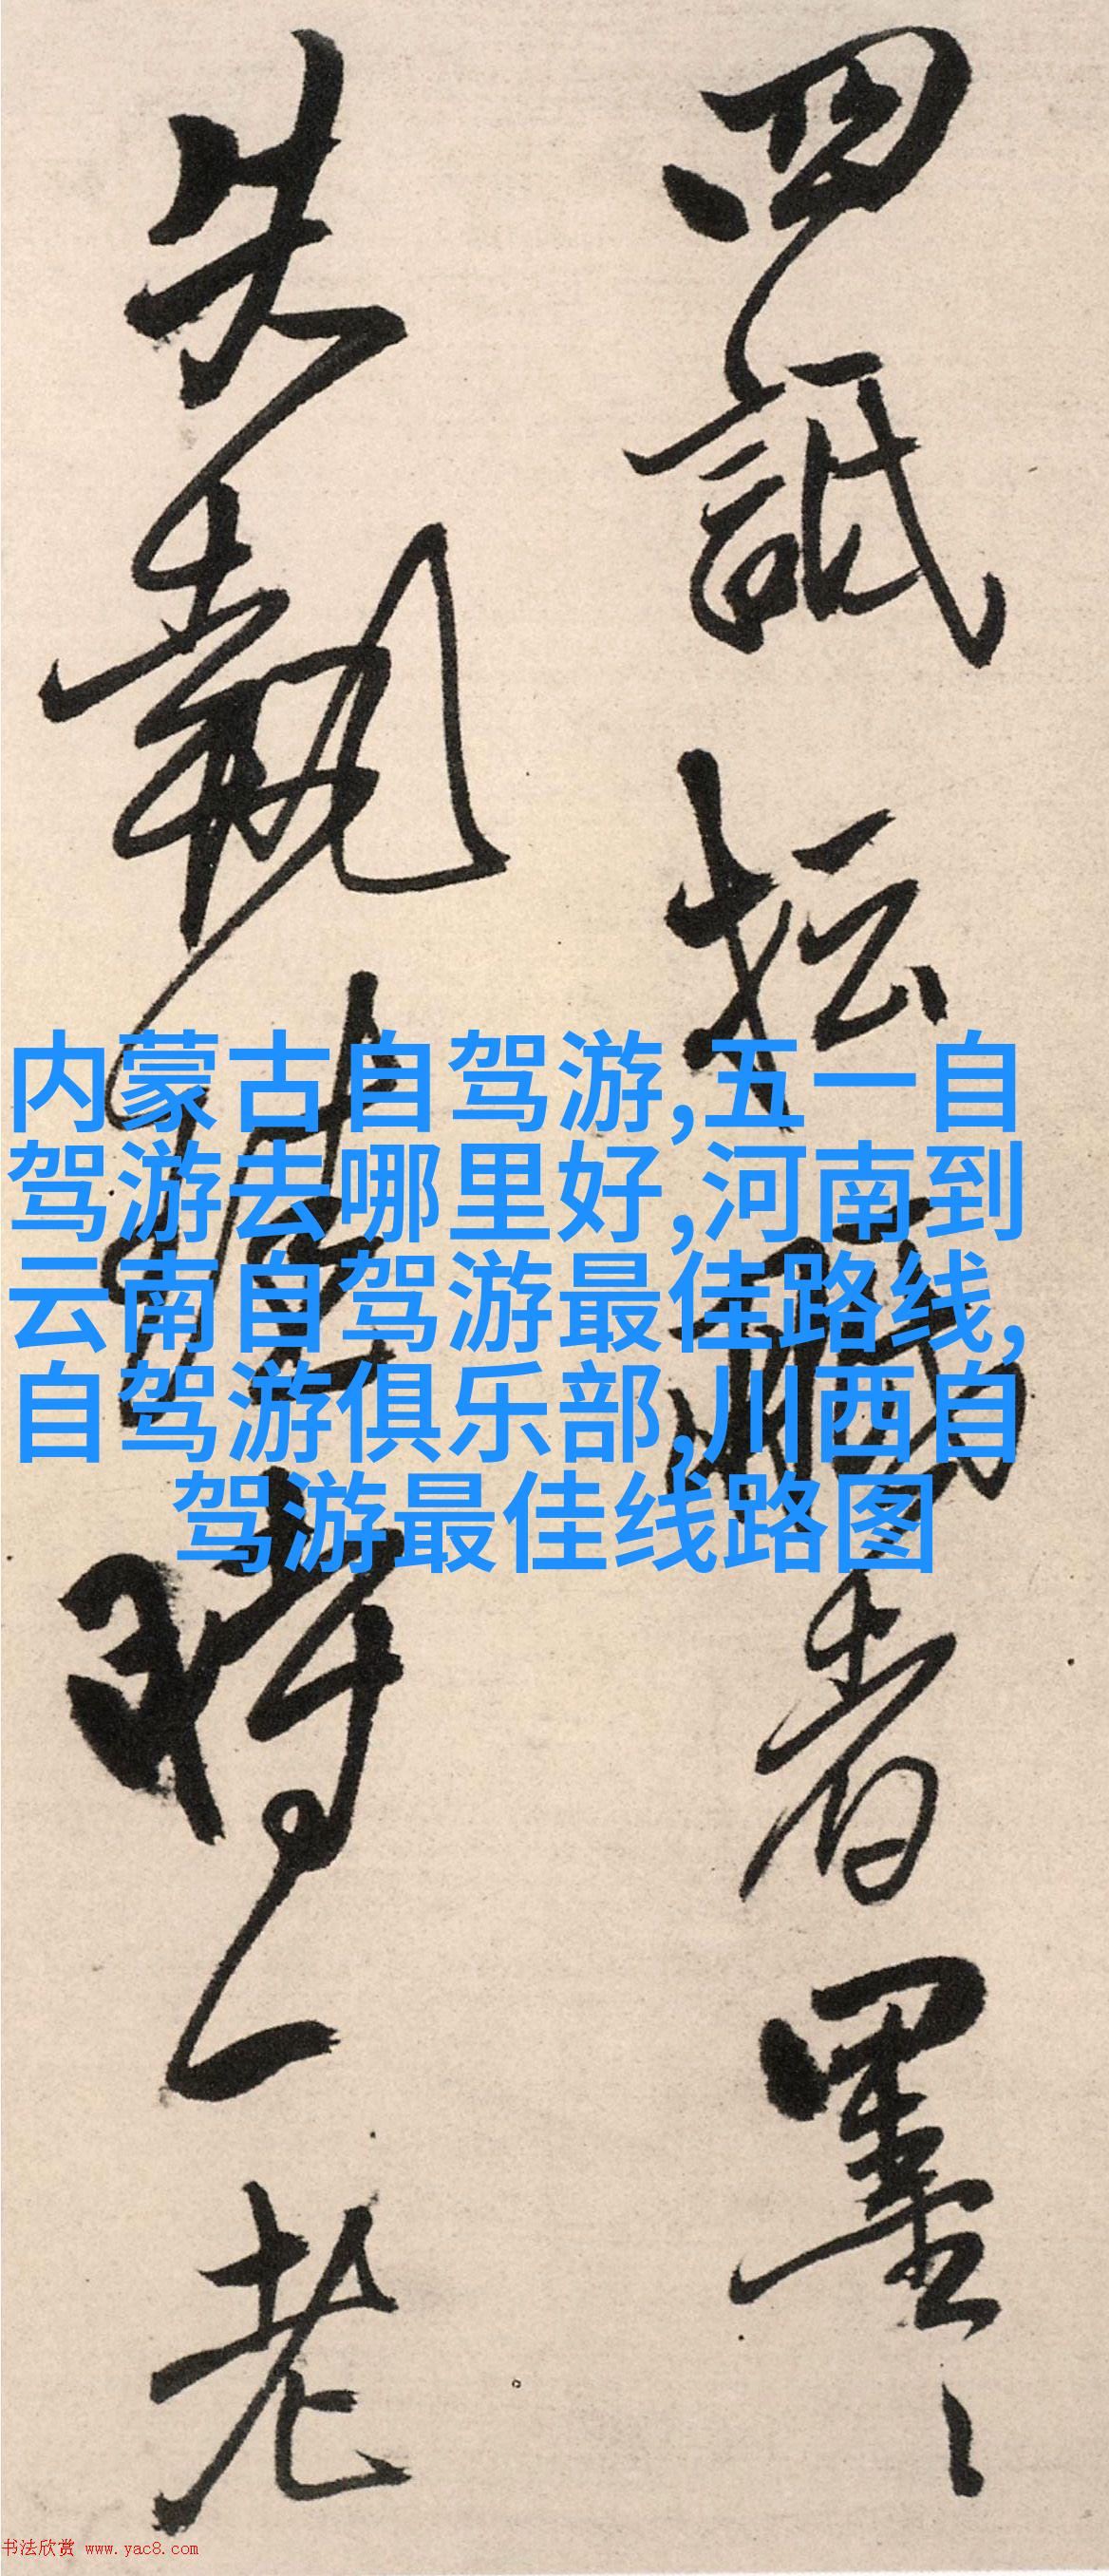 四詆者墨
失執時一老
内蒙古自驾游,五一自
驾游去哪里好,河南到
云南自驾游最佳路线,
自驾游俱乐部,川西自
驾游最佳线路图
书法欣赏 www.yac8.com